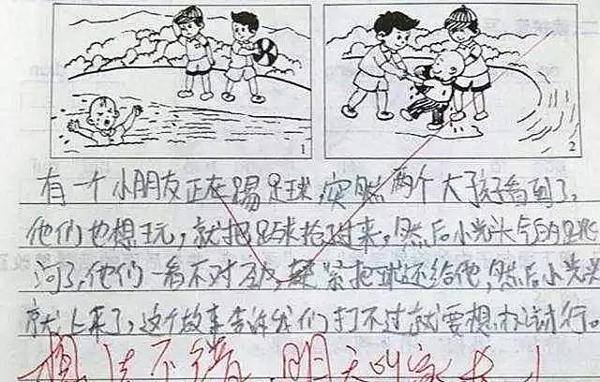 1
2
有一个小朋友正在踢足球,突然两个大孩看到了,
他们也想玩,就把足球抢过来,然后小光头气的跳
河了,他们一看不对劲,赶紧把球还给他,然后小光头
就上来了,这个故事告诉我们打不过就要想办法行。
想法不错,明天叫家长!